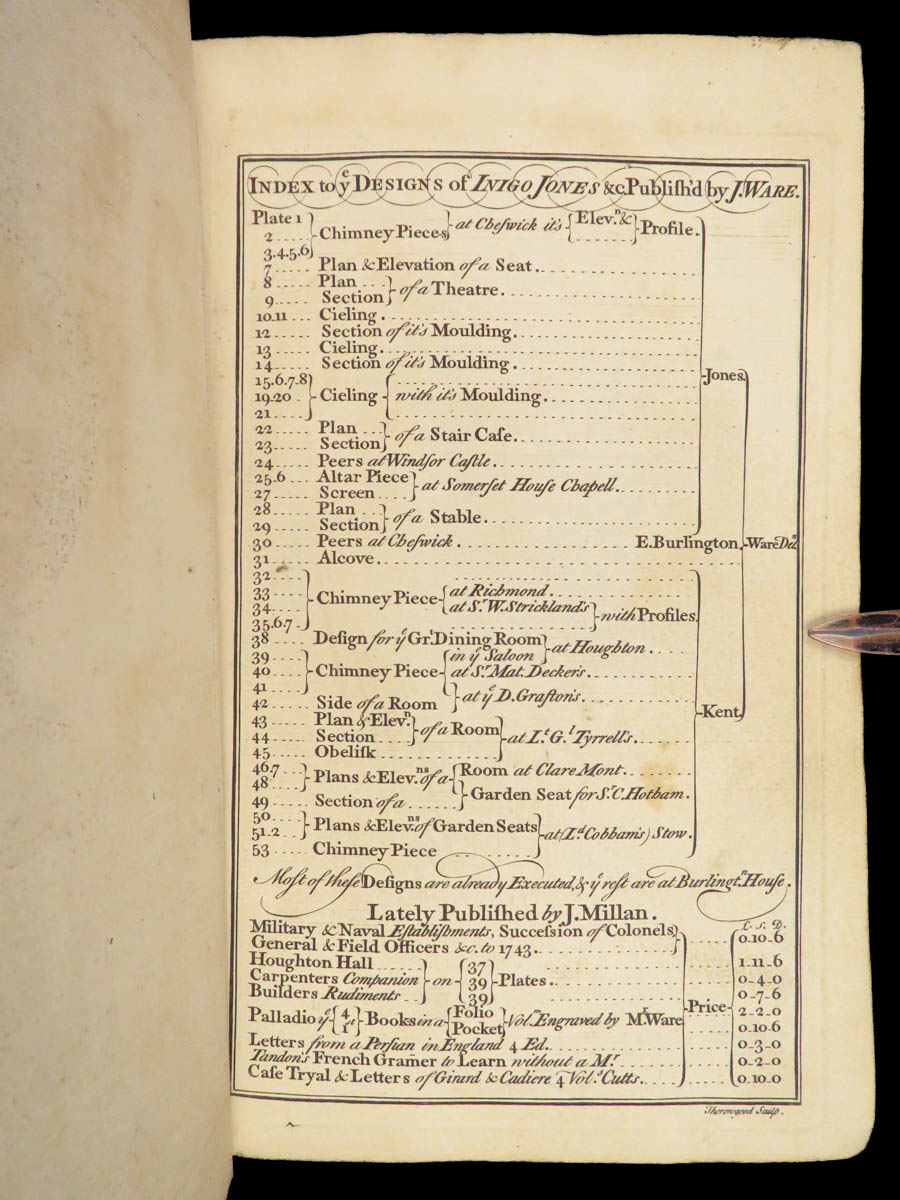 INDEX to yᵉ DESIGNS of INIGO JONES &c. Publiſh'd by J. WARE.
Plate 1
2 ..... Chimney Pieces at Cheſwick it's Elev.ⁿ & Profile.
3.4.5.6
7 ..... Plan & Elevation of a Seat.
8 ..... Plan
9 ..... Section of a Theatre.
10.11 ... Cieling.
12 ..... Section of it's Moulding.
13 ..... Cieling.
14 ..... Section of it's Moulding.
15.6.7.8 Jones.
19.20 . Cieling with it's Moulding.
21 .....
22 ..... Plan
23 ..... Section of a Stair Caſe.
24 ..... Peers at Windſor Caſtle.
25.6 ... Altar Piece
27 ..... Screen at Somerſet Houſe Chapell.
28 ..... Plan
29 ..... Section of a Stable.
30 ..... Peers at Cheſwick. E. Burlington. Ware Delⁿ
31 ..... Alcove.
32 ....
33 .... Chimney Piece at Richmond.
34 .... at Sʳ. W. Strickland's with Profiles.
35.6.7 .
38 .... Deſign for yᵉ Grᵗ. Dining Room at Houghton.
39 .... in yᵉ Saloon
40 .... Chimney Piece at Sʳ. Mat. Decker's.
41 ....
42 .... Side of a Room at yᵉ D. Grafton's.
43 .... Plan & Elevⁿ. Kent.
44 .... Section of a Room at Lᵗ. Gˡ. Tyrrell's.
45 .... Obeliſk
46.7 Room at Clare Mont.
48 .... Plans & Elev.ⁿˢ of a
49 .... Section of a Garden Seat for Sʳ. C. Hotham.
50 ....
51.2 .. Plans & Elev.ⁿˢ of Garden Seats at (Lᵈ Cobham's) Stow.
53 .... Chimney Piece
Moſt of theſe Deſigns are already Executed, & yᵉ reſt are at Burlingt.ⁿ Houſe.
Lately Publiſhed by J. Millan.
£. S. D.
Military & Naval Eſtabliſhments, Succeſsion of Colonels 0-10-6
General & Field Officers &c. to 1743.
Houghton Hall 37 1-11-6
Carpenters Companion on 39 Plates. 0-4-0
Builders Rudiments 39 0-7-6
Price
Palladio yᵉ 4 Books in a Folio Vol. Engraved by Mʳ. Ware 2-2-0
1ˢᵗ Pocket 0.10.6
Letters from a Perſian in England 4 Ed. 0-3-0
Tandon's French Gram̄er to Learn without a Mʳ. 0-2-0
Caſe Tryal & Letters of Girard & Cadiere 4 Vol.ˢ Cutts. 0-10-0
Thorowgood Sculp.